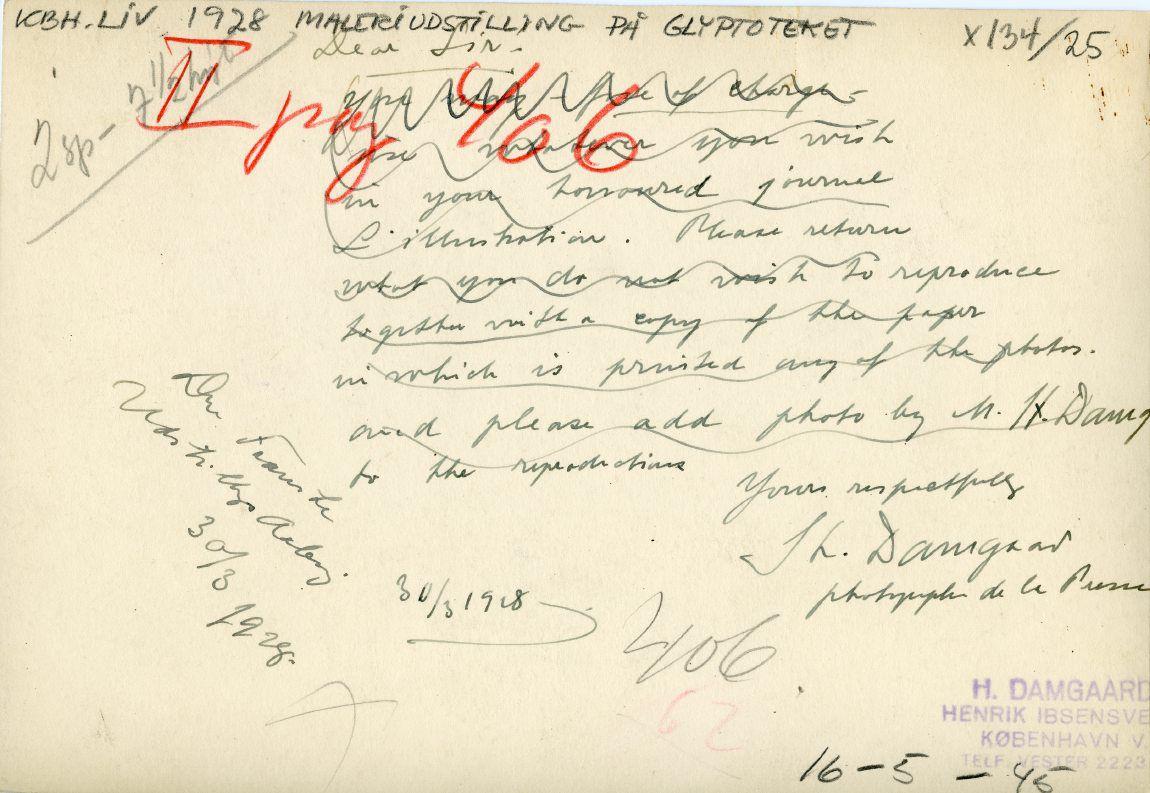 KBH. LIV 1928 MALERIUDSTILLING PÅ GLYPTOTEKET
X134/25
Dear Sir.
2 sp - 7 1/2
II pag 406
You may free of charge
use whatever you wish
in your honnoured journal
L'illustration. Please return
what you do not wish to reproduce
together with a copy of the paper
in which is printed any of the photos.
and please add photo by M. H. Damg
to the reproductions
Yours respectfully
H. Damgaard
photographe de la Presse
Den Franske
Udstillings
30/3
1928.
30/3 1928
406
62
H. DAMGAARD
HENRIK IBSENSVE
KØBENHAVN V.
TELF. VESTER 2223
16-5-45